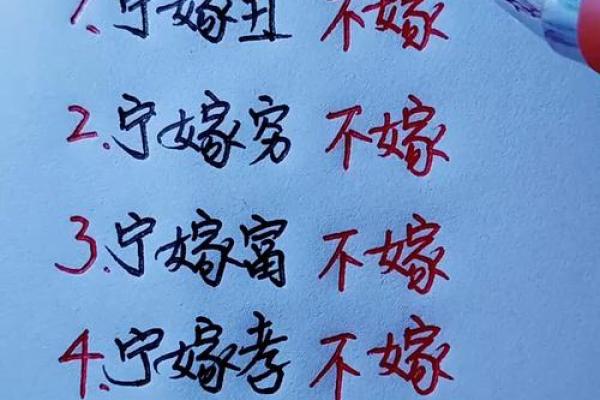 1.宁嫁丑 不嫁
2.宁嫁穷 不嫁
3.宁嫁富 不嫁
4.宁嫁孝 不嫁